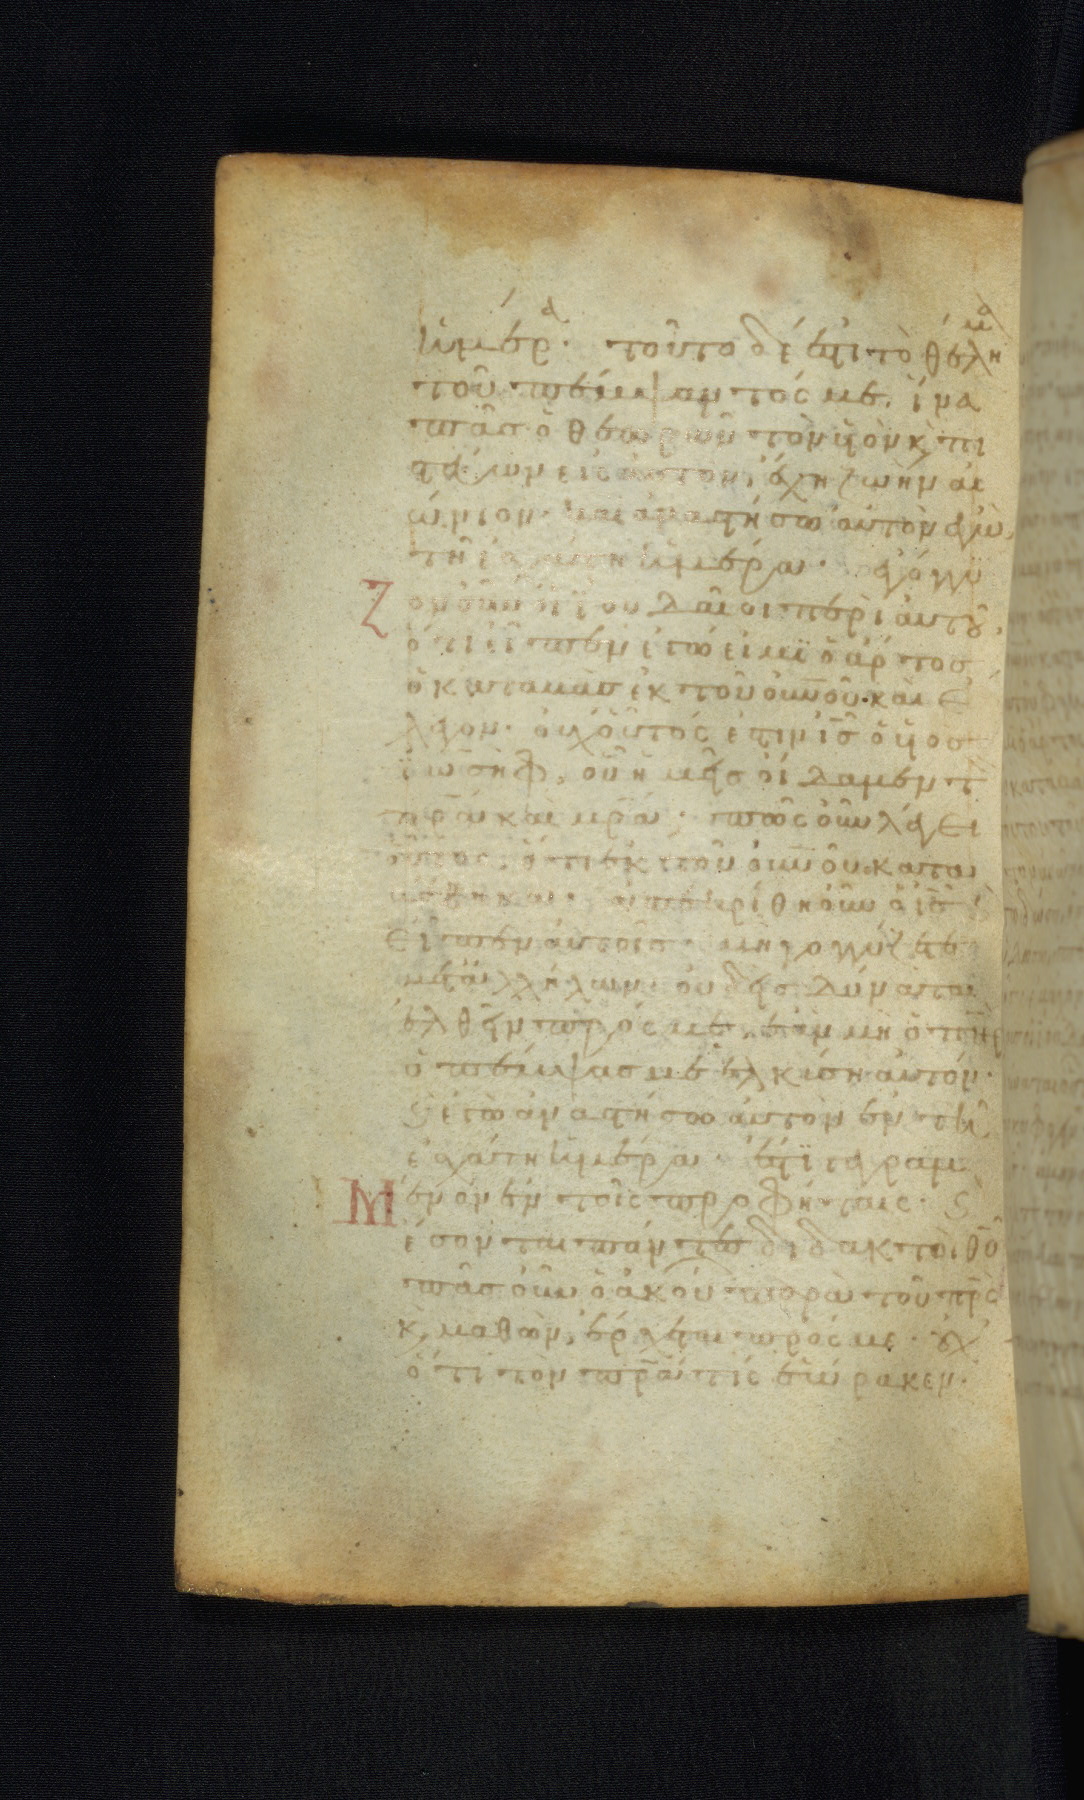 ἡμέρᾳ. τοῦτο δέ ἐστι τὸ θέλημα
τοῦ πέμψαντός με. ἵνα
πᾶς ὁ θεωρῶν τὸν υἱὸν κ πι
στεύων εἰς αὐτὸν, ἔχη ζωὴν αἰ
ώνιον. καὶ ἀναστήσω αὐτὸν ἐγὼ
τῆ ἐσχάτη ἡμέρα. ἐγόγγυ
Ζον οὖν οἱ ϊουδαῖοι περὶ αὐτοῦ,
ὅτι εἶπεν ἐγώ εἰμϊ ὁ ἄρτος
ὁ καταβὰς ἐκ τοῦ οὐνοῦ. καὶ ἔ
λεγον. οὐχ οὗτός ἐστιν ις ὁ υἱος
ϊωσὴφ, οὗ ἡμεῖς οἴδαμεν τ
πρα καὶ μρα. πῶς οὖν λέγει
οὗτος. ὅτι ἐκ τοῦ οὐνοῦ κατα
βέβηκα. ἀπεκρίθη οὖν ὁ ις κ
εἶπεν αὐτοῖς. μὴ γογγύζετε
μετ' ἀλλήλων. οὐδεὶς δύναται
ἐλθεῖν πρός με. ἐὰν μὴ ὁ πηρ
ὁ πέμψας με ἑλκύση αὐτόν.
κ ἐγὼ ἀναστήσω αὐτὸν ἐν τῆ
ἐσχάτη ἡμέρα. ἔστϊ γεγραμ
Μένον ἐν τοῖς προφήταις. κ
ἔσονται πάντες διδακτοὶ θυ
πᾶς οὖν ὁ ἀκούων παρὰ τοῦ πρς
κ μαθὼν, ἔρχεται πρός με. οὐχ
ὅτι τὸν πρα τὶς ἑώρακεν.